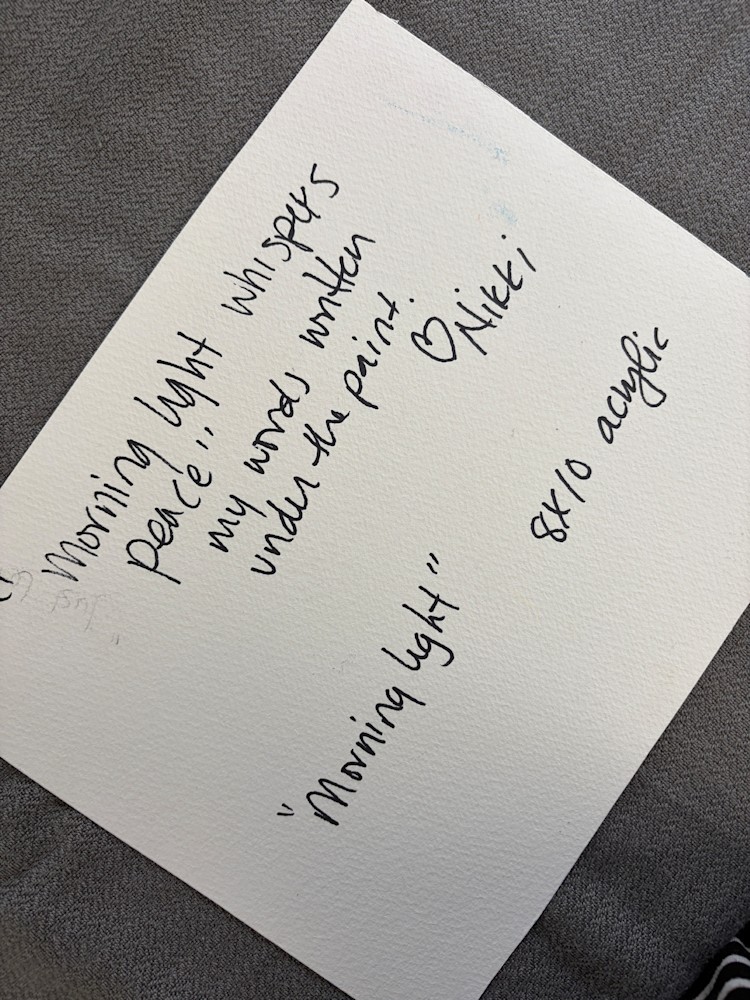 Morning light whispers
peace...
my words written
under the paint.
♡ Nikki
"Morning light"
8x10 acrylic